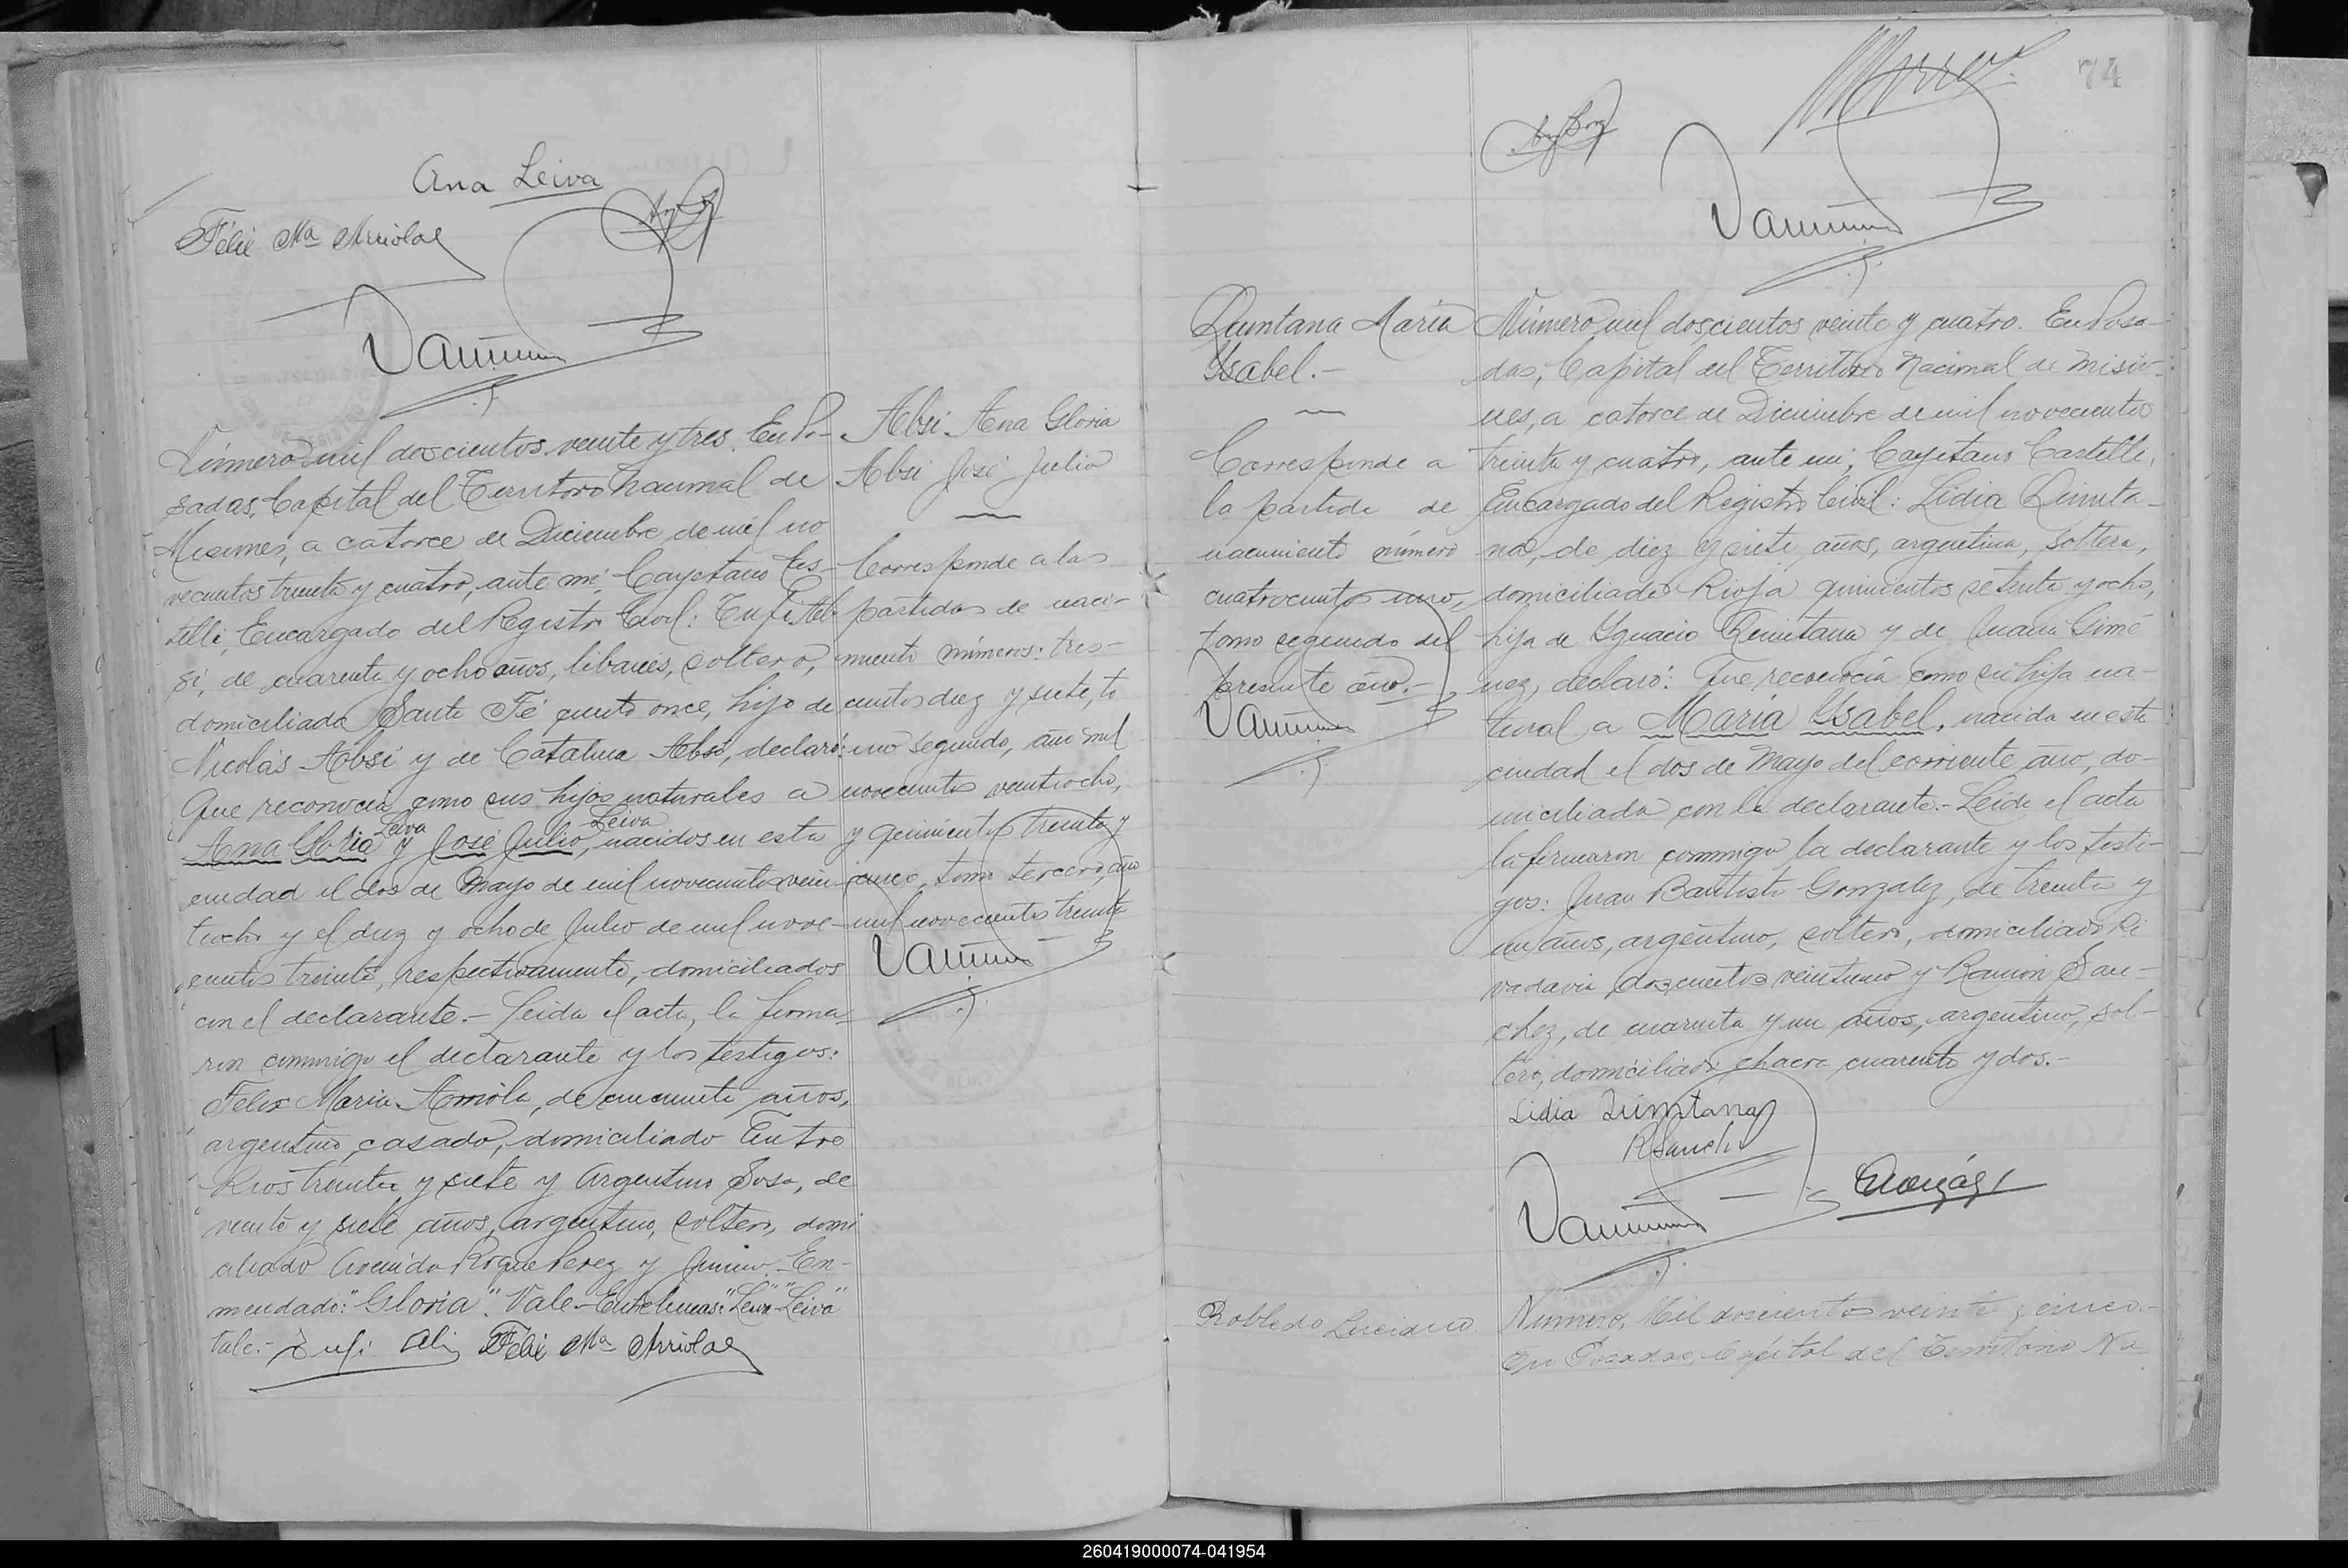 Ana Leiva
Félix Ma Arriola
Número mil doscientos veinte y tres. En Po-
sadas, Capital del Territorio Nacional de
Misiones, a catorce de Diciembre de mil no
vecientos treinta y cuatro, ante mí, Cayetano Cas-
telli, Encargado del Registro Civil: Tufi Ab-
si, de cuarenta y ocho años, libanés, soltero,
domiciliado Santa Fé ciento once, hijo de
Nicolás Absi y de Catalina Absi, declaró:
Que reconocía como sus hijos naturales a
Leiva Leiva
Ana Gloria y José Julio, nacidos en esta
ciudad el dos de Mayo de mil novecientos vein-
tiocho y el diez y ocho de Julio de mil nove-
cientos treinta, respectivamente, domiciliados
con el declarante.- Leida el acta, la firma-
ron conmigo el declarante y los testigos:
Felix Maria Arriola, de cincuenta años,
argentino, casado, domiciliado Entre
Rios treinta y siete y Argentino Sosa, de
veinte y siete años, argentino, soltero, domi
ciliado Avenida Roque Perez y Junin. En-
mendado: "Gloria". Vale.- Entrelineas: "Leiva" "Leiva"
Vale.- Tufi Félix Ma Arriola
Absi Ana Gloria
Absi José Julio
Corresponde a las
partidas de naci-
miento números: tres-
cientos diez y siete, to
mo segundo, año mil
novecientos veintiocho,
y quinientos treinta y
cinco, tomo tercero, año
mil novecientos treinta
74
Quintana María
Ysabel.-
Corresponde a
la partida de
nacimiento número
cuatrocientos uno,
tomo segundo del
presente año.-
Número mil doscientos veinte y cuatro. En Posa-
das, Capital del Territorio Nacional de Misio-
nes, a catorce de Diciembre de mil novecientos
treinta y cuatro, ante mí, Cayetano Castelli,
Encargado del Registro Civil: Lidia Quinta-
na, de diez y siete años, argentina, soltera,
domiciliada Rioja quinientos setenta y ocho,
hija de Ygnacio Quintana y de Juana Gimé
nez, declaró: Que reconocía como su hija na-
tural a María Ysabel, nacida en esta
ciudad el dos de Mayo del corriente año, do-
miciliada con la declarante.- Leida el acta
la firmaron conmigo la declarante y los testi-
gos: Juan Bautista Gonzalez, de treinta y
un años, argentino, soltero, domiciliado Ri
vadavia doscientos veintiuno y Ramón San-
chez, de cuarenta y un años, argentino, sol-
tero, domiciliado chacra cuarenta y dos.-
Lidia Quintana
R Sanchez
Robledo Luciano
Número, Mil doscientos veinte y cinco.-
En Posadas, Capital del Territorio Na
260419000074-041954